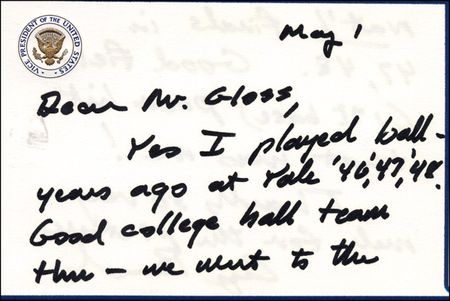 VICE PRESIDENT OF THE UNITED STATES
May 1
Dear Mr. Gloss,
Yes I played ball –
years ago at Yale '46, '47, '48.
Good college ball team
then – we went to the